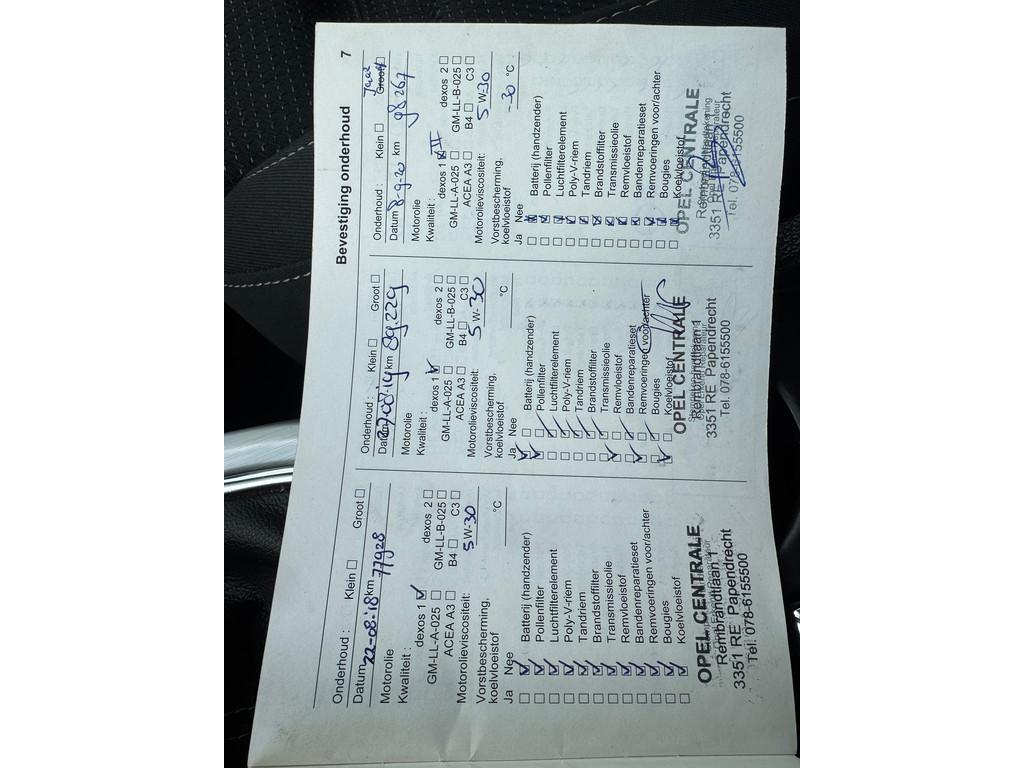 Bevestiging onderhoud
7
Onderhoud : Klein ☐ Groot ☐
Datum 22-08-'18 km 77928
Motorolie
Kwaliteit : dexos 1 ☑ dexos 2 ☐
GM-LL-A-025 ☐ GM-LL-B-025 ☐
ACEA A3 ☐ B4 ☐ C3 ☐
Motorolieviscositeit: 5 W-30
Vorstbescherming,
koelvloeistof °C
Ja Nee
☐ ☑ Batterij (handzender)
☐ ☑ Pollenfilter
☐ ☑ Luchtfilterelement
☐ ☑ Poly-V-riem
☐ ☑ Tandriem
☐ ☑ Brandstoffilter
☐ ☑ Transmissieolie
☐ ☑ Remvloeistof
☐ ☑ Bandenreparatieset
☐ ☑ Remvoeringen voor/achter
☐ ☑ Bougies
☐ ☑ Koelvloeistof
OPEL CENTRALE
Rembrandtlaan 1
3351 RE Papendrecht
Tel. 078-6155500
Onderhoud : Klein ☐ Groot ☐
Datum 27-08-19 km 89.229
Motorolie
Kwaliteit : dexos 1 ☑ dexos 2 ☐
GM-LL-A-025 ☐ GM-LL-B-025 ☐
ACEA A3 ☐ B4 ☐ C3 ☐
Motorolieviscositeit: 5 W-30
Vorstbescherming,
koelvloeistof °C
Ja Nee
☑ ☐ Batterij (handzender)
☑ ☐ Pollenfilter
☐ ☑ Luchtfilterelement
☐ ☑ Poly-V-riem
☐ ☑ Tandriem
☐ ☑ Brandstoffilter
☐ ☑ Transmissieolie
☑ ☐ Remvloeistof
☐ ☑ Bandenreparatieset
☐ ☑ Remvoeringen voor/achter
☐ ☑ Bougies
☑ ☐ Koelvloeistof
OPEL CENTRALE
Rembrandtlaan 1
3351 RE Papendrecht
Tel. 078-6155500
Onderhoud : Klein ☐ Groot
Datum 8-9-20 km 98267
Motorolie
Kwaliteit : dexos 1 ☑ II dexos 2 ☐
GM-LL-A-025 ☐ GM-LL-B-025 ☐
ACEA A3 ☐ B4 ☐ C3 ☐
Motorolieviscositeit: 5 W-30
Vorstbescherming,
koelvloeistof -30 °C
Ja Nee
☐ ☑ Batterij (handzender)
☐ ☑ Pollenfilter
☐ ☑ Luchtfilterelement
☐ ☑ Poly-V-riem
☐ ☑ Tandriem
☐ ☑ Brandstoffilter
☐ ☑ Transmissieolie
☐ ☑ Remvloeistof
☐ ☑ Bandenreparatieset
☐ ☑ Remvoeringen voor/achter
☐ ☑ Bougies
☐ ☑ Koelvloeistof
OPEL CENTRALE
Rembrandtlaan 1
3351 RE Papendrecht
Tel. 078-6155500